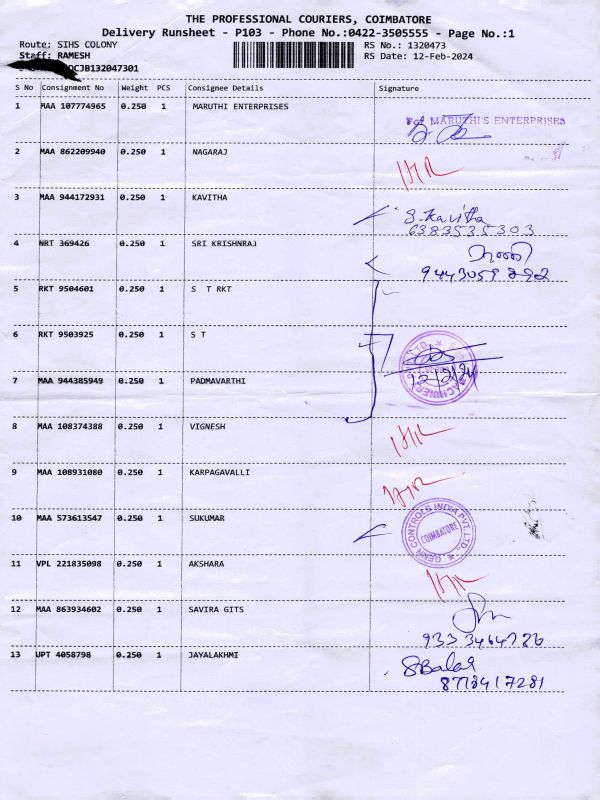 THE PROFESSIONAL COURIERS, COIMBATORE
Delivery Runsheet - P103 - Phone No.:0422-3505555 - Page No.:1
Route: SIHS COLONY
RS No.: 1320473
Staff: RAMESH
RS Date: 12-Feb-2024
OCJB132047301
S No Consignment No Weight PCS Consignee Details Signature
1 MAA 107774965 0.250 1 MARUTHI ENTERPRISES
For MARUTHI'S ENTERPRISES
2 MAA 862209940 0.250 1 NAGARAJ
3 MAA 944172931 0.250 1 KAVITHA
S. Kavitha
6383535303
4 NRT 369426 0.250 1 SRI KRISHNRAJ
9443059292
5 RKT 9504601 0.250 1 S T RKT
6 RKT 9503925 0.250 1 S T
12/2/24
7 MAA 944385949 0.250 1 PADMAVARTHI
8 MAA 108374388 0.250 1 VIGNESH
9 MAA 108931080 0.250 1 KARPAGAVALLI
10 MAA 573613547 0.250 1 SUKUMAR
GEMN CONTROLS INDIA PVT. LTD.
COIMBATORE
11 VPL 221835098 0.250 1 AKSHARA
12 MAA 863934602 0.250 1 SAVIRA GITS
9333464786
13 UPT 4058798 0.250 1 JAYALAKHMI
S Balaji
8778417281